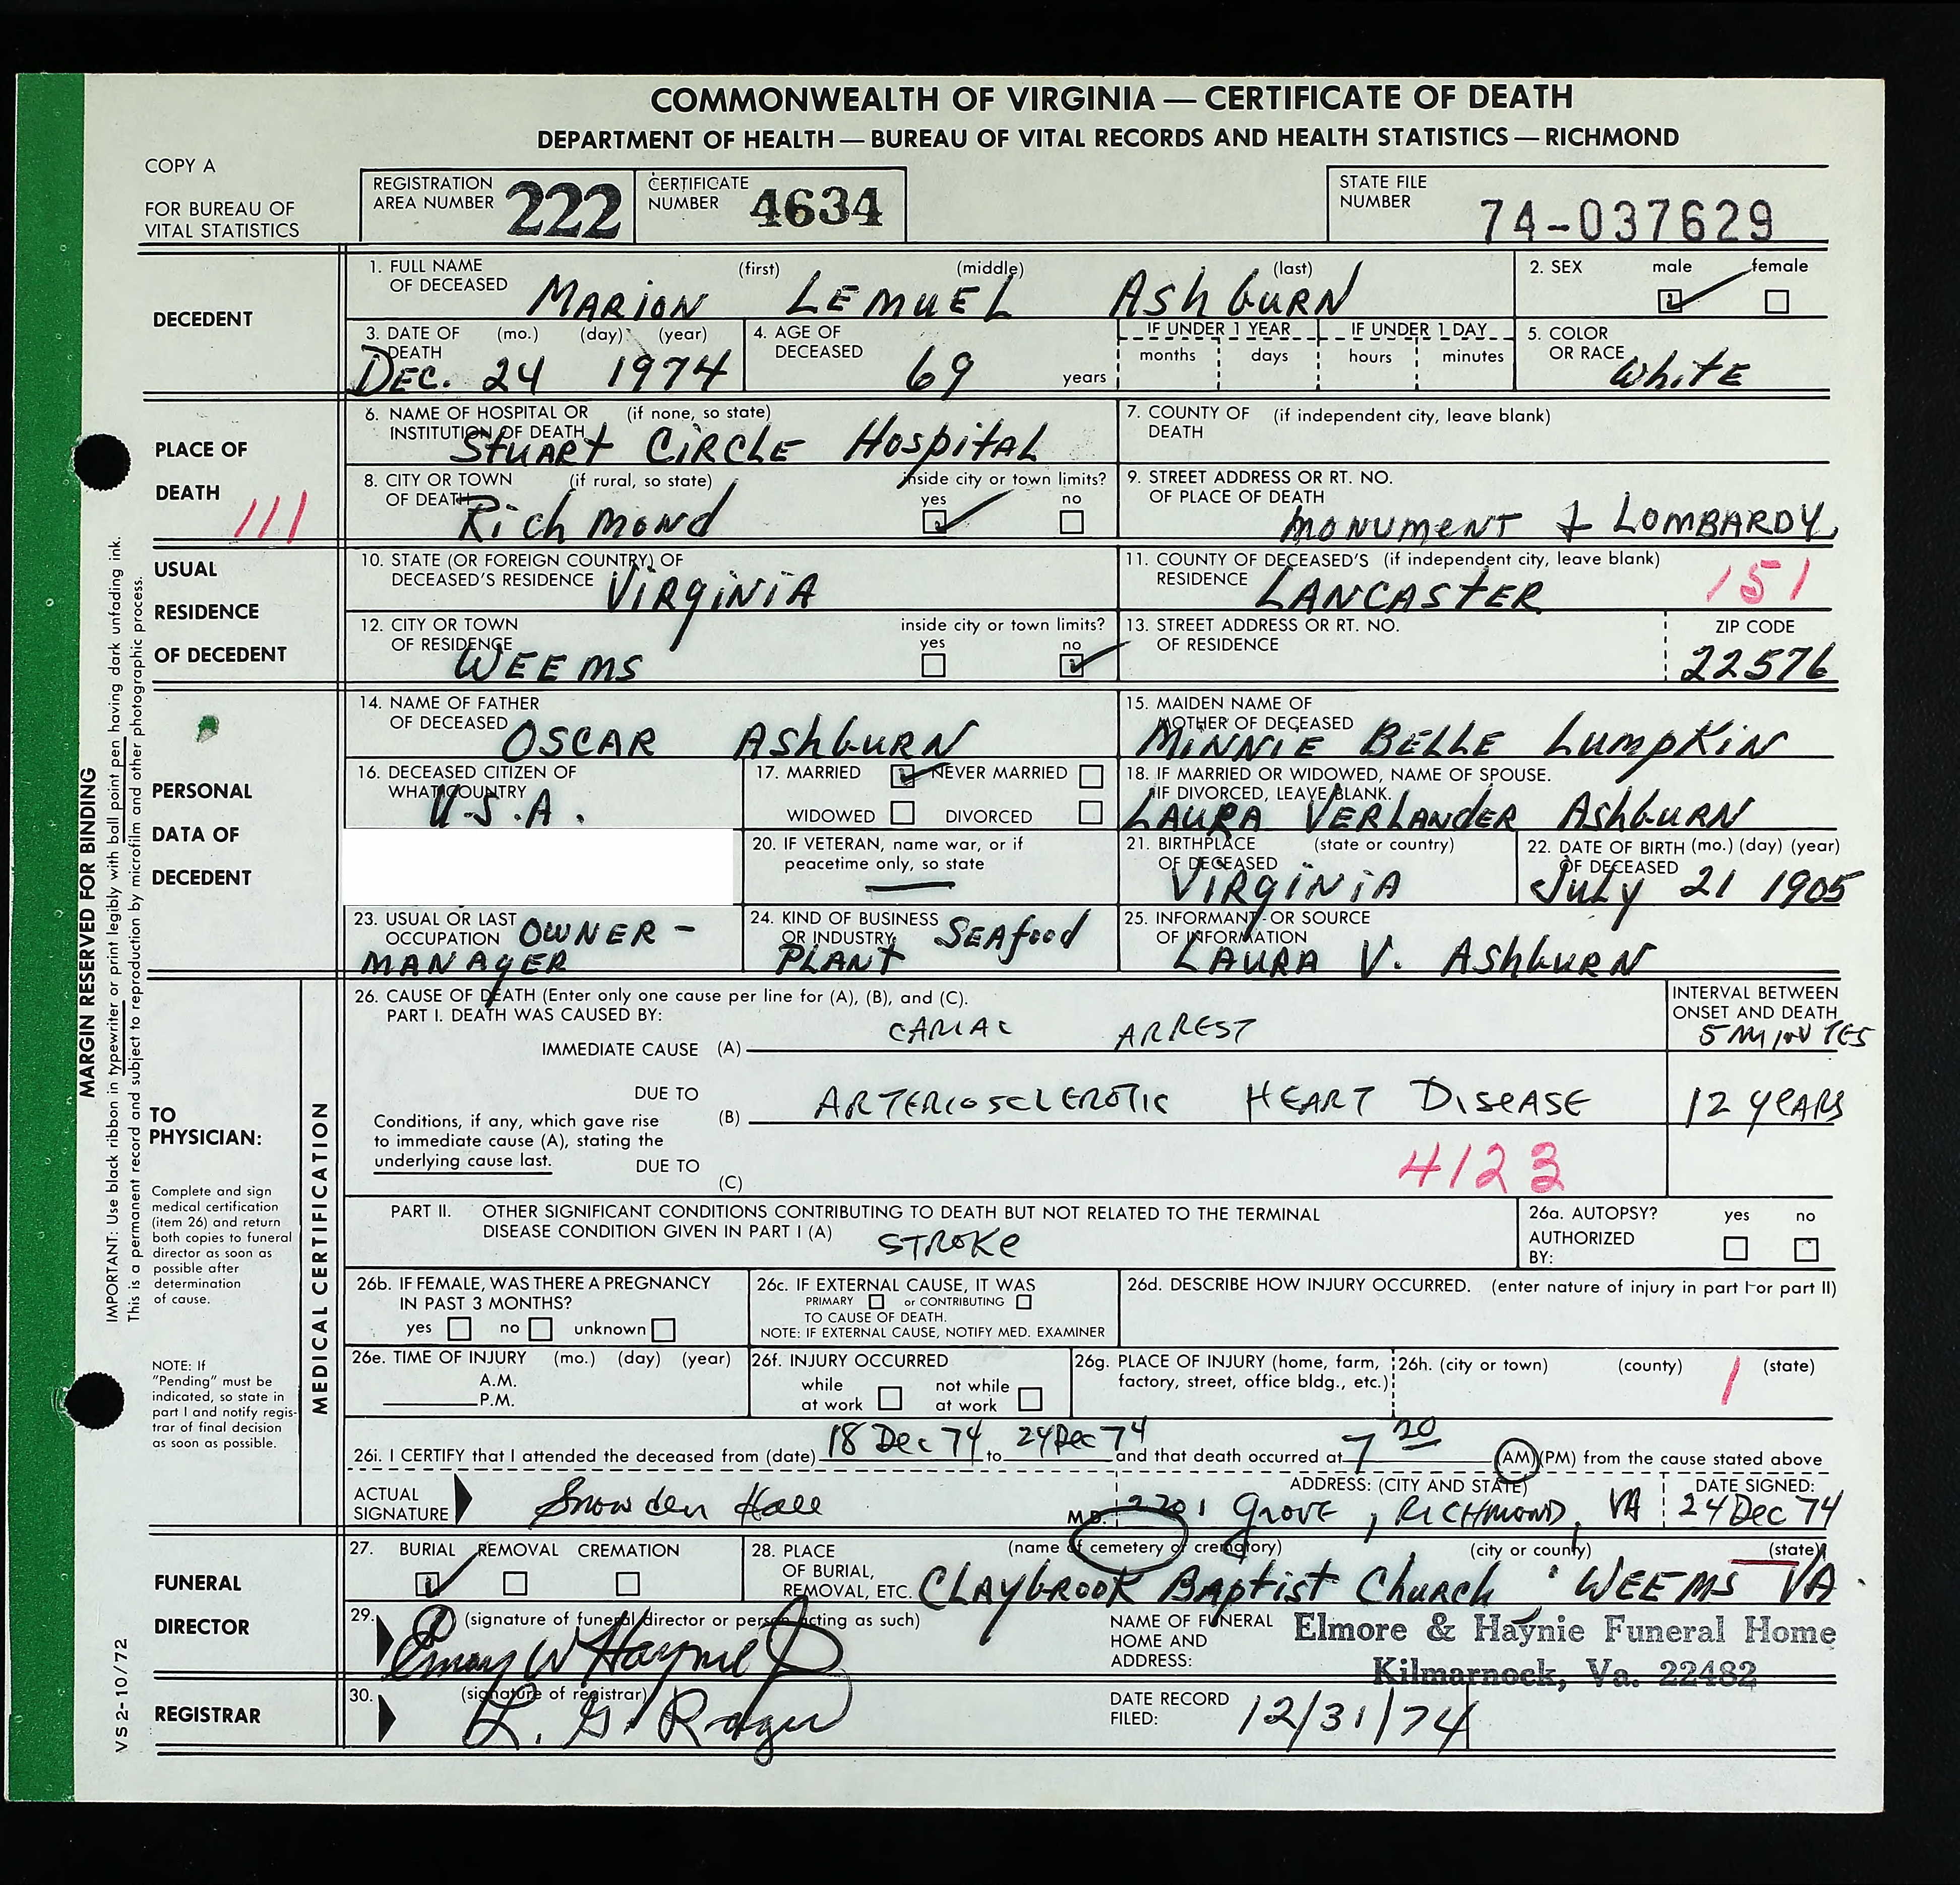 COMMONWEALTH OF VIRGINIA — CERTIFICATE OF DEATH
DEPARTMENT OF HEALTH — BUREAU OF VITAL RECORDS AND HEALTH STATISTICS — RICHMOND
COPY A
FOR BUREAU OF
VITAL STATISTICS
REGISTRATION
AREA NUMBER 222
CERTIFICATE
NUMBER 4634
STATE FILE
NUMBER 74-037629
DECEDENT
1. FULL NAME (first) (middle) (last)
OF DECEASED MARION LEMUEL AshburN
2. SEX male female
3. DATE OF (mo.) (day) (year)
DEATH
DEC. 24 1974
4. AGE OF
DECEASED 69 years
IF UNDER 1 YEAR IF UNDER 1 DAY
months days hours minutes
5. COLOR
OR RACE White
PLACE OF
DEATH 111
6. NAME OF HOSPITAL OR (if none, so state)
INSTITUTION OF DEATH
Stuart Circle Hospital
7. COUNTY OF (if independent city, leave blank)
DEATH
8. CITY OR TOWN (if rural, so state) inside city or town limits?
OF DEATH yes no
Richmond
9. STREET ADDRESS OR RT. NO.
OF PLACE OF DEATH
Monument & Lombardy
USUAL
RESIDENCE
OF DECEDENT
10. STATE (OR FOREIGN COUNTRY) OF
DECEASED'S RESIDENCE Virginia
11. COUNTY OF DECEASED'S (if independent city, leave blank)
RESIDENCE LANCASTER 151
12. CITY OR TOWN inside city or town limits?
OF RESIDENCE yes no
WEEMS
13. STREET ADDRESS OR RT. NO. ZIP CODE
OF RESIDENCE 22576
PERSONAL
DATA OF
DECEDENT
14. NAME OF FATHER
OF DECEASED OSCAR AshburN
15. MAIDEN NAME OF
MOTHER OF DECEASED
MINNIE BELLE LumpKin
16. DECEASED CITIZEN OF
WHAT COUNTRY
U.S.A.
17. MARRIED NEVER MARRIED
WIDOWED DIVORCED
18. IF MARRIED OR WIDOWED, NAME OF SPOUSE.
IF DIVORCED, LEAVE BLANK.
LAURA VERLANDER AshburN
20. IF VETERAN, name war, or if
peacetime only, so state
—
21. BIRTHPLACE (state or country)
OF DECEASED
Virginia
22. DATE OF BIRTH (mo.) (day) (year)
OF DECEASED
July 21 1905
23. USUAL OR LAST
OCCUPATION OWNER -
MANAGER
24. KIND OF BUSINESS
OR INDUSTRY Seafood
PLANT
25. INFORMANT OR SOURCE
OF INFORMATION
LAURA V. AshburN
MARGIN RESERVED FOR BINDING
IMPORTANT: Use black ribbon in typewriter or print legibly with ball point pen having dark unfading ink.
This is a permanent record and subject to reproduction by microfilm and other photographic process.
TO
PHYSICIAN:
Complete and sign
medical certification
(item 26) and return
both copies to funeral
director as soon as
possible after
determination
of cause.
NOTE: If
"Pending" must be
indicated, so state in
part I and notify regis-
trar of final decision
as soon as possible.
MEDICAL CERTIFICATION
26. CAUSE OF DEATH (Enter only one cause per line for (A), (B), and (C).
PART I. DEATH WAS CAUSED BY:
INTERVAL BETWEEN
ONSET AND DEATH
IMMEDIATE CAUSE (A) ARREST 5 MINUTES
DUE TO
(B) ARTERIOSCLEROTIC HEART DISEASE 12 YEARS
Conditions, if any, which gave rise
to immediate cause (A), stating the
underlying cause last. DUE TO
(C) 4123
PART II. OTHER SIGNIFICANT CONDITIONS CONTRIBUTING TO DEATH BUT NOT RELATED TO THE TERMINAL
DISEASE CONDITION GIVEN IN PART I (A) STROKE
26a. AUTOPSY? yes no
AUTHORIZED
BY:
26b. IF FEMALE, WAS THERE A PREGNANCY
IN PAST 3 MONTHS?
yes no unknown
26c. IF EXTERNAL CAUSE, IT WAS
PRIMARY or CONTRIBUTING
TO CAUSE OF DEATH.
NOTE: IF EXTERNAL CAUSE, NOTIFY MED. EXAMINER
26d. DESCRIBE HOW INJURY OCCURRED. (enter nature of injury in part I or part II)
26e. TIME OF INJURY (mo.) (day) (year)
A.M.
P.M.
26f. INJURY OCCURRED
while not while
at work at work
26g. PLACE OF INJURY (home, farm,
factory, street, office bldg., etc.)
26h. (city or town) (county) 1 (state)
26i. I CERTIFY that I attended the deceased from (date) 18 Dec 74 to 24 Dec 74 and that death occurred at 7 20 (AM) (PM) from the cause stated above
ACTUAL
SIGNATURE Snowden Hall M.D.
ADDRESS: (CITY AND STATE)
2201 Grove, Richmond, VA
DATE SIGNED:
24 Dec 74
FUNERAL
DIRECTOR
27. BURIAL REMOVAL CREMATION
28. PLACE (name of cemetery or crematory) (city or county) (state)
OF BURIAL,
REMOVAL, ETC. Claybrook Baptist Church WEEMS VA.
29. (signature of funeral director or person acting as such)
Emory W Haynie Jr
NAME OF FUNERAL
HOME AND
ADDRESS:
Elmore & Haynie Funeral Home
Kilmarnock, Va. 22482
REGISTRAR
30. (signature of registrar)
L. G.
DATE RECORD
FILED: 12/31/74
VS 2-10/72